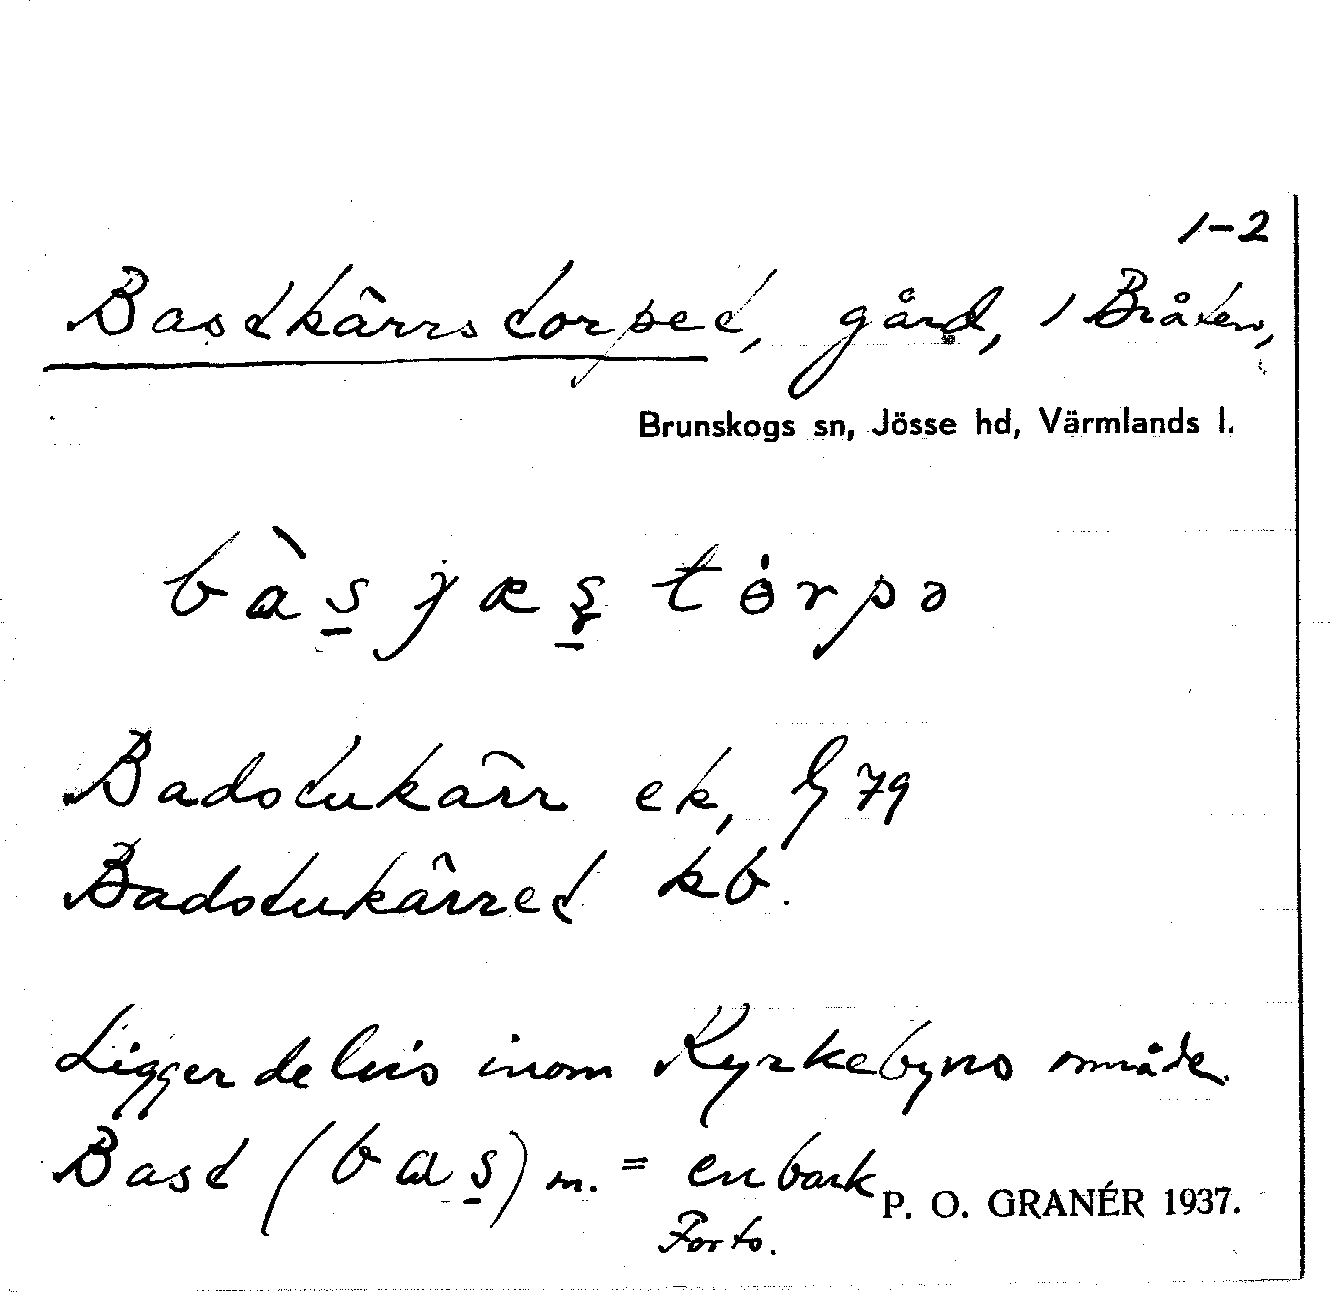 1-2
Bastkärrstorpet, gård, i Bråten,
Brunskogs sn, Jösse hd, Värmlands l.
bàs̱ jæs̱ tȯrpə
Badstukärr ek, 79
Badstukärret kb.
Ligger delvis inom Kyrkebyns område.
Bast (bas̱) m. = en bark
P. O. GRANÉR 1937.
Forts.